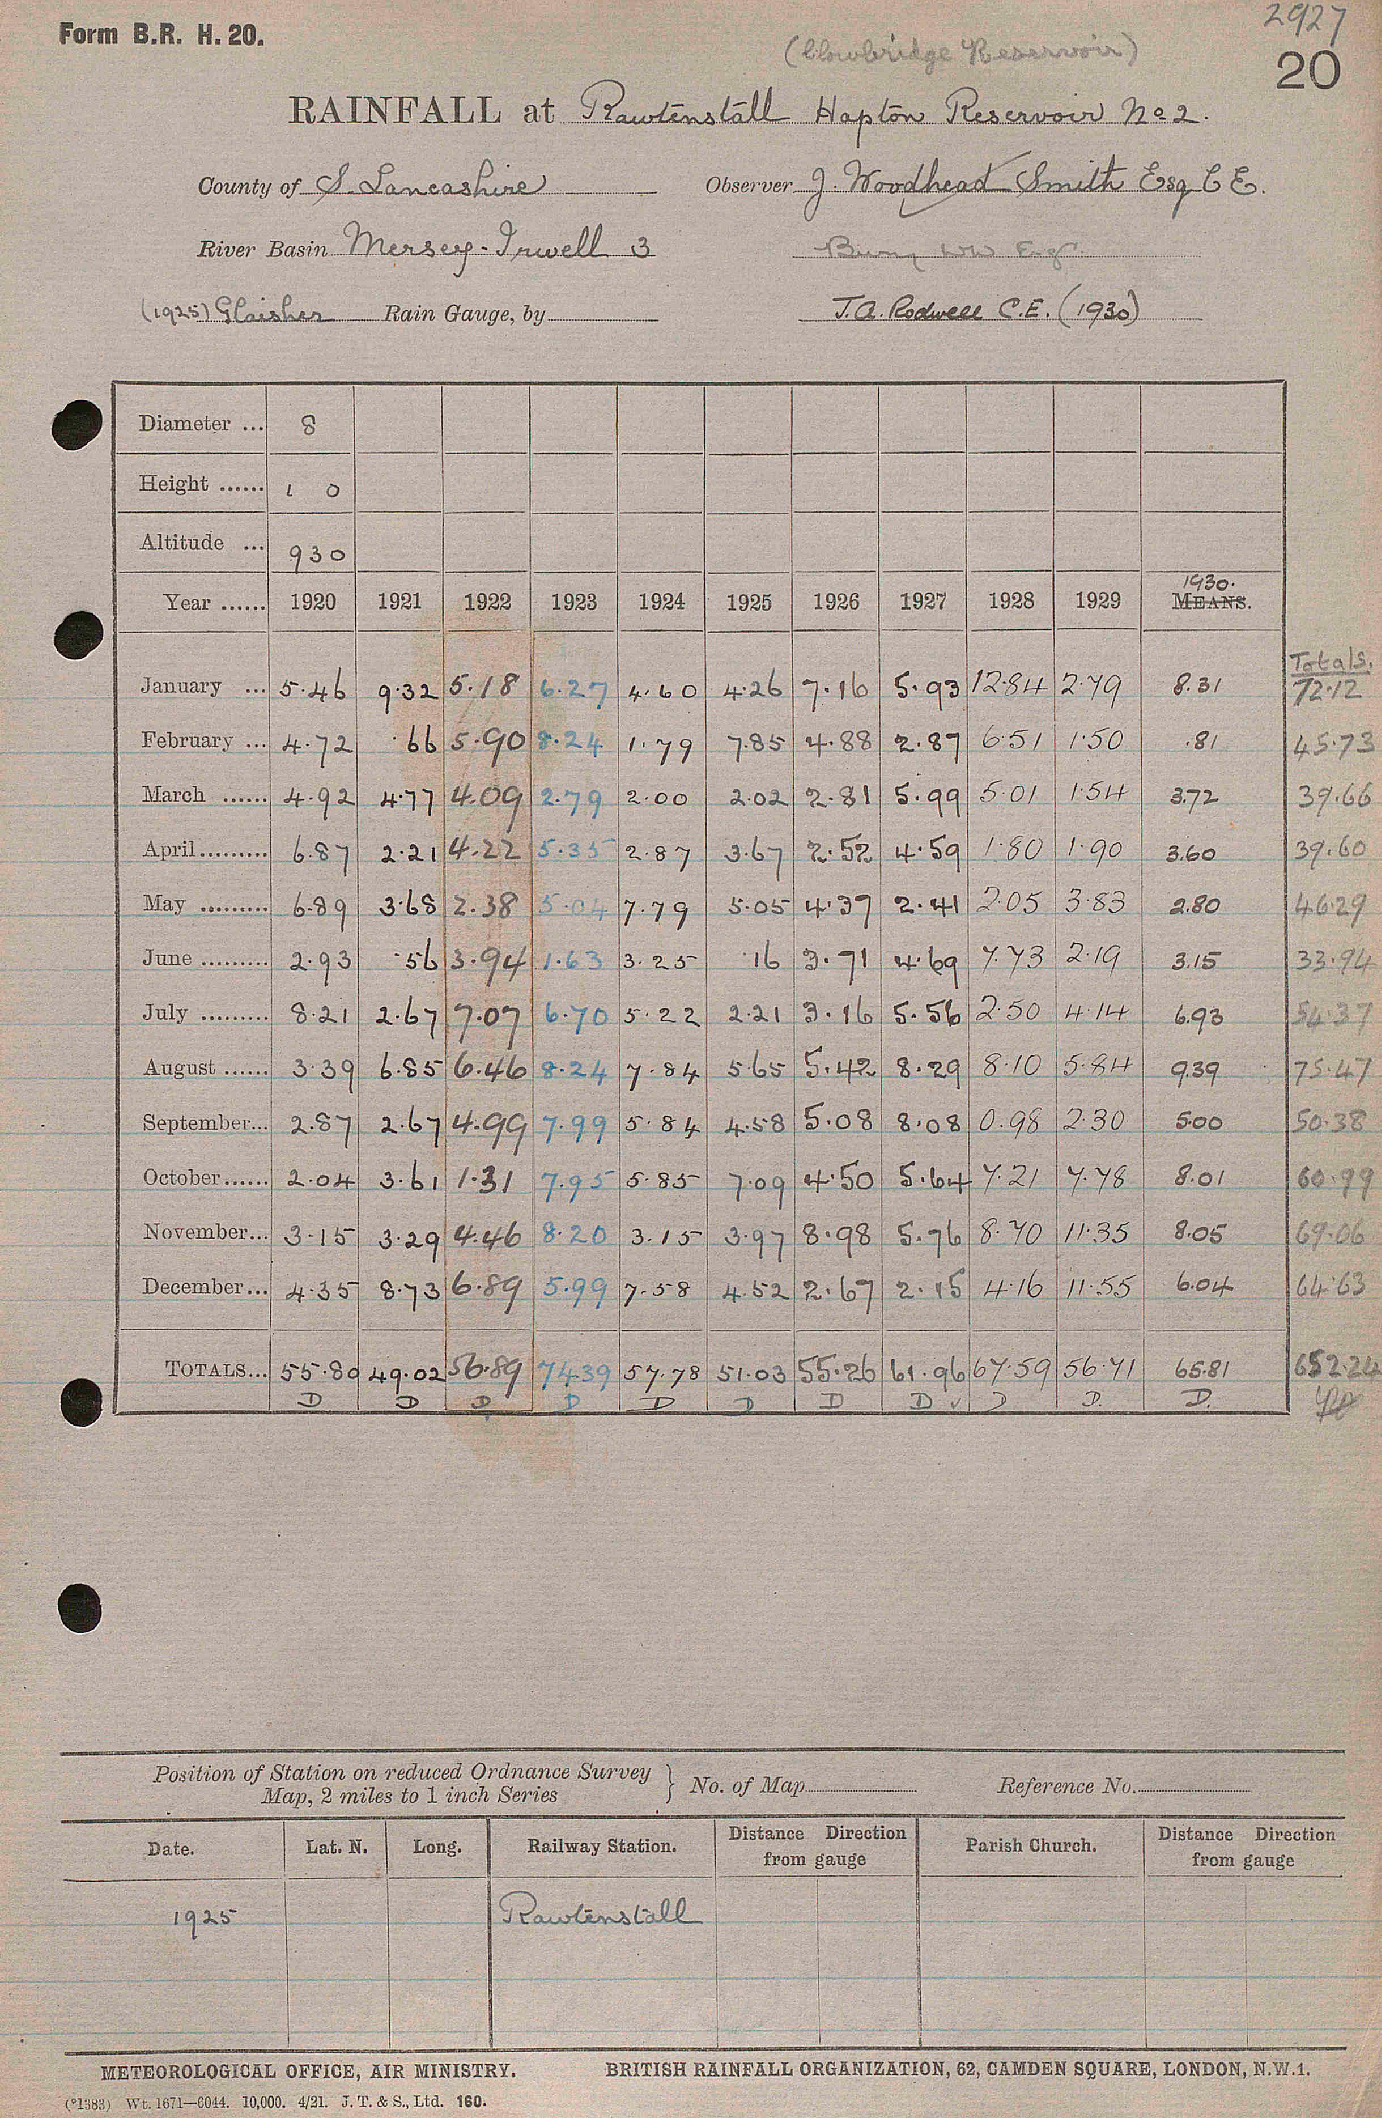 2927
Form B.R. H. 20.
(Clowbridge Reservoir)
20
RAINFALL at Rawtenstall Hapton Reservoir No 2.
County of S. Lancashire Observer J. Woodhead Smith Esq C E.
River Basin Mersey-Irwell 3 Bury WW
(1925) Glaisher Rain Gauge, by J.A. Rodwell C.E. (1930)
Diameter ... 8
Height ...... 1 0
Altitude ... 930
1930.
Year ...... 1920 1921 1922 1923 1924 1925 1926 1927 1928 1929 MEANS.
Totals.
January ... 5.46 9.32 5.18 6.27 4.60 4.26 7.16 5.93 12.84 2.79 8.31 72.12
February ... 4.72 .66 5.90 8.24 1.79 7.85 4.88 2.87 6.51 1.50 .81 45.73
March ...... 4.92 4.77 4.09 2.79 2.00 2.02 2.81 5.99 5.01 1.54 3.72 39.66
April......... 6.87 2.21 4.22 5.35 2.87 3.67 2.52 4.59 1.80 1.90 3.60 39.60
May ......... 6.89 3.68 2.38 5.04 7.79 5.05 4.37 2.41 2.05 3.83 2.80 46.29
June ......... 2.93 .56 3.94 1.63 3.25 .16 3.71 4.69 7.73 2.19 3.15 33.94
July ......... 8.21 2.67 7.07 6.70 5.22 2.21 3.16 5.56 2.50 4.14 6.93 54.37
August ...... 3.39 6.85 6.46 8.24 7.84 5.65 5.42 8.29 8.10 5.84 9.39 75.47
September... 2.87 2.67 4.99 7.99 5.84 4.58 5.08 8.08 0.98 2.30 5.00 50.38
October...... 2.04 3.61 1.31 7.95 5.85 7.09 4.50 5.64 7.21 7.78 8.01 60.99
November... 3.15 3.29 4.46 8.20 3.15 3.97 8.98 5.76 8.70 11.35 8.05 69.06
December... 4.35 8.73 6.89 5.99 7.58 4.52 2.67 2.15 4.16 11.55 6.04 64.63
TOTALS... 55.80 49.02 56.89 74.39 57.78 51.03 55.26 61.96 67.59 56.71 65.81 652.24
D D D D D D D D ✓ D D. D.
Position of Station on reduced Ordnance Survey
Map, 2 miles to 1 inch Series } No. of Map Reference No.
Date. Lat. N. Long. Railway Station. Distance Direction from gauge Parish Church. Distance Direction from gauge
1925 Rawtenstall
METEOROLOGICAL OFFICE, AIR MINISTRY. BRITISH RAINFALL ORGANIZATION, 62, CAMDEN SQUARE, LONDON, N.W.1.
(*1383) Wt. 1671—6044. 10,000. 4/21. J. T. & S., Ltd. 160.